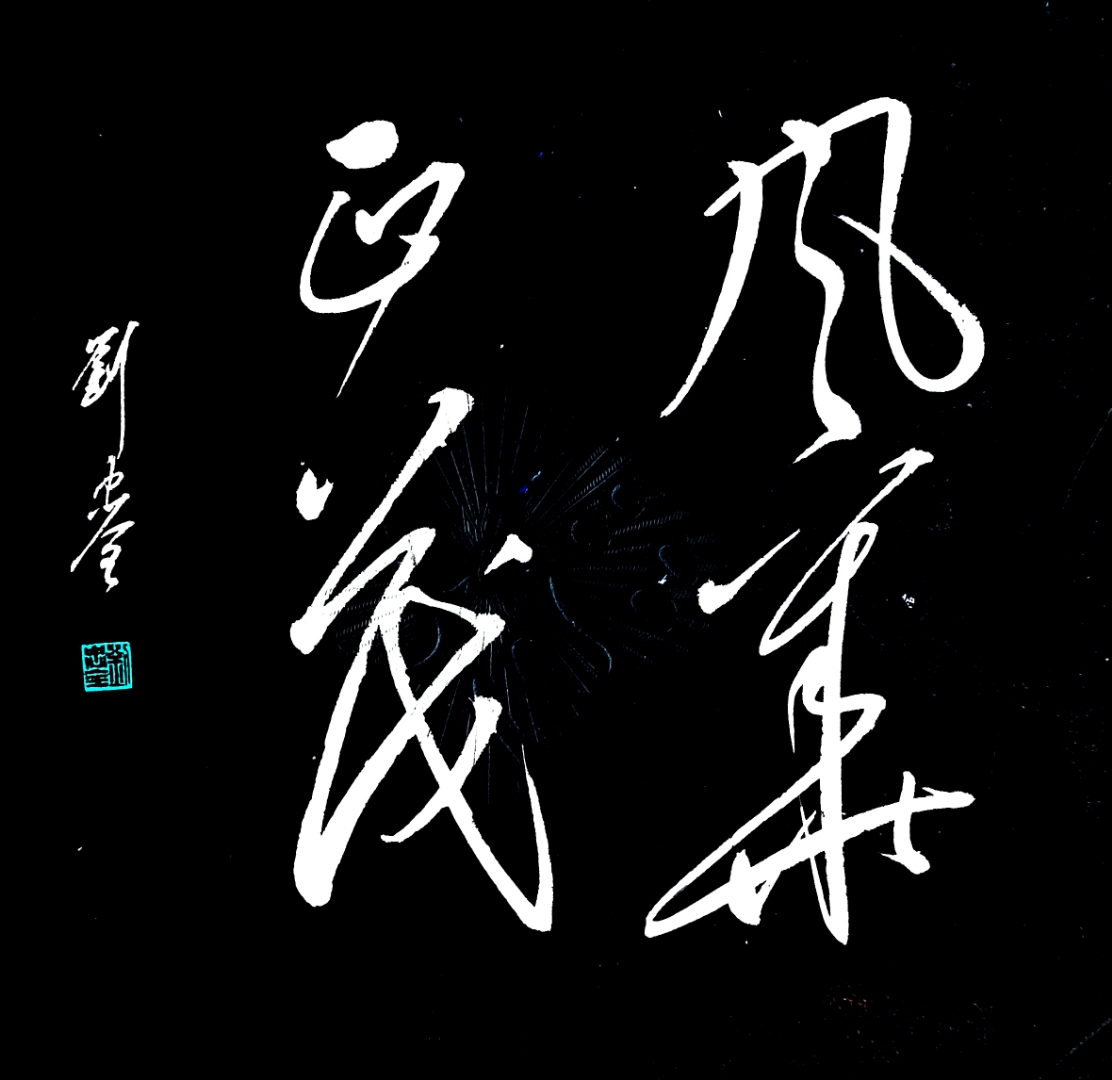 風華
正茂
劉忠全